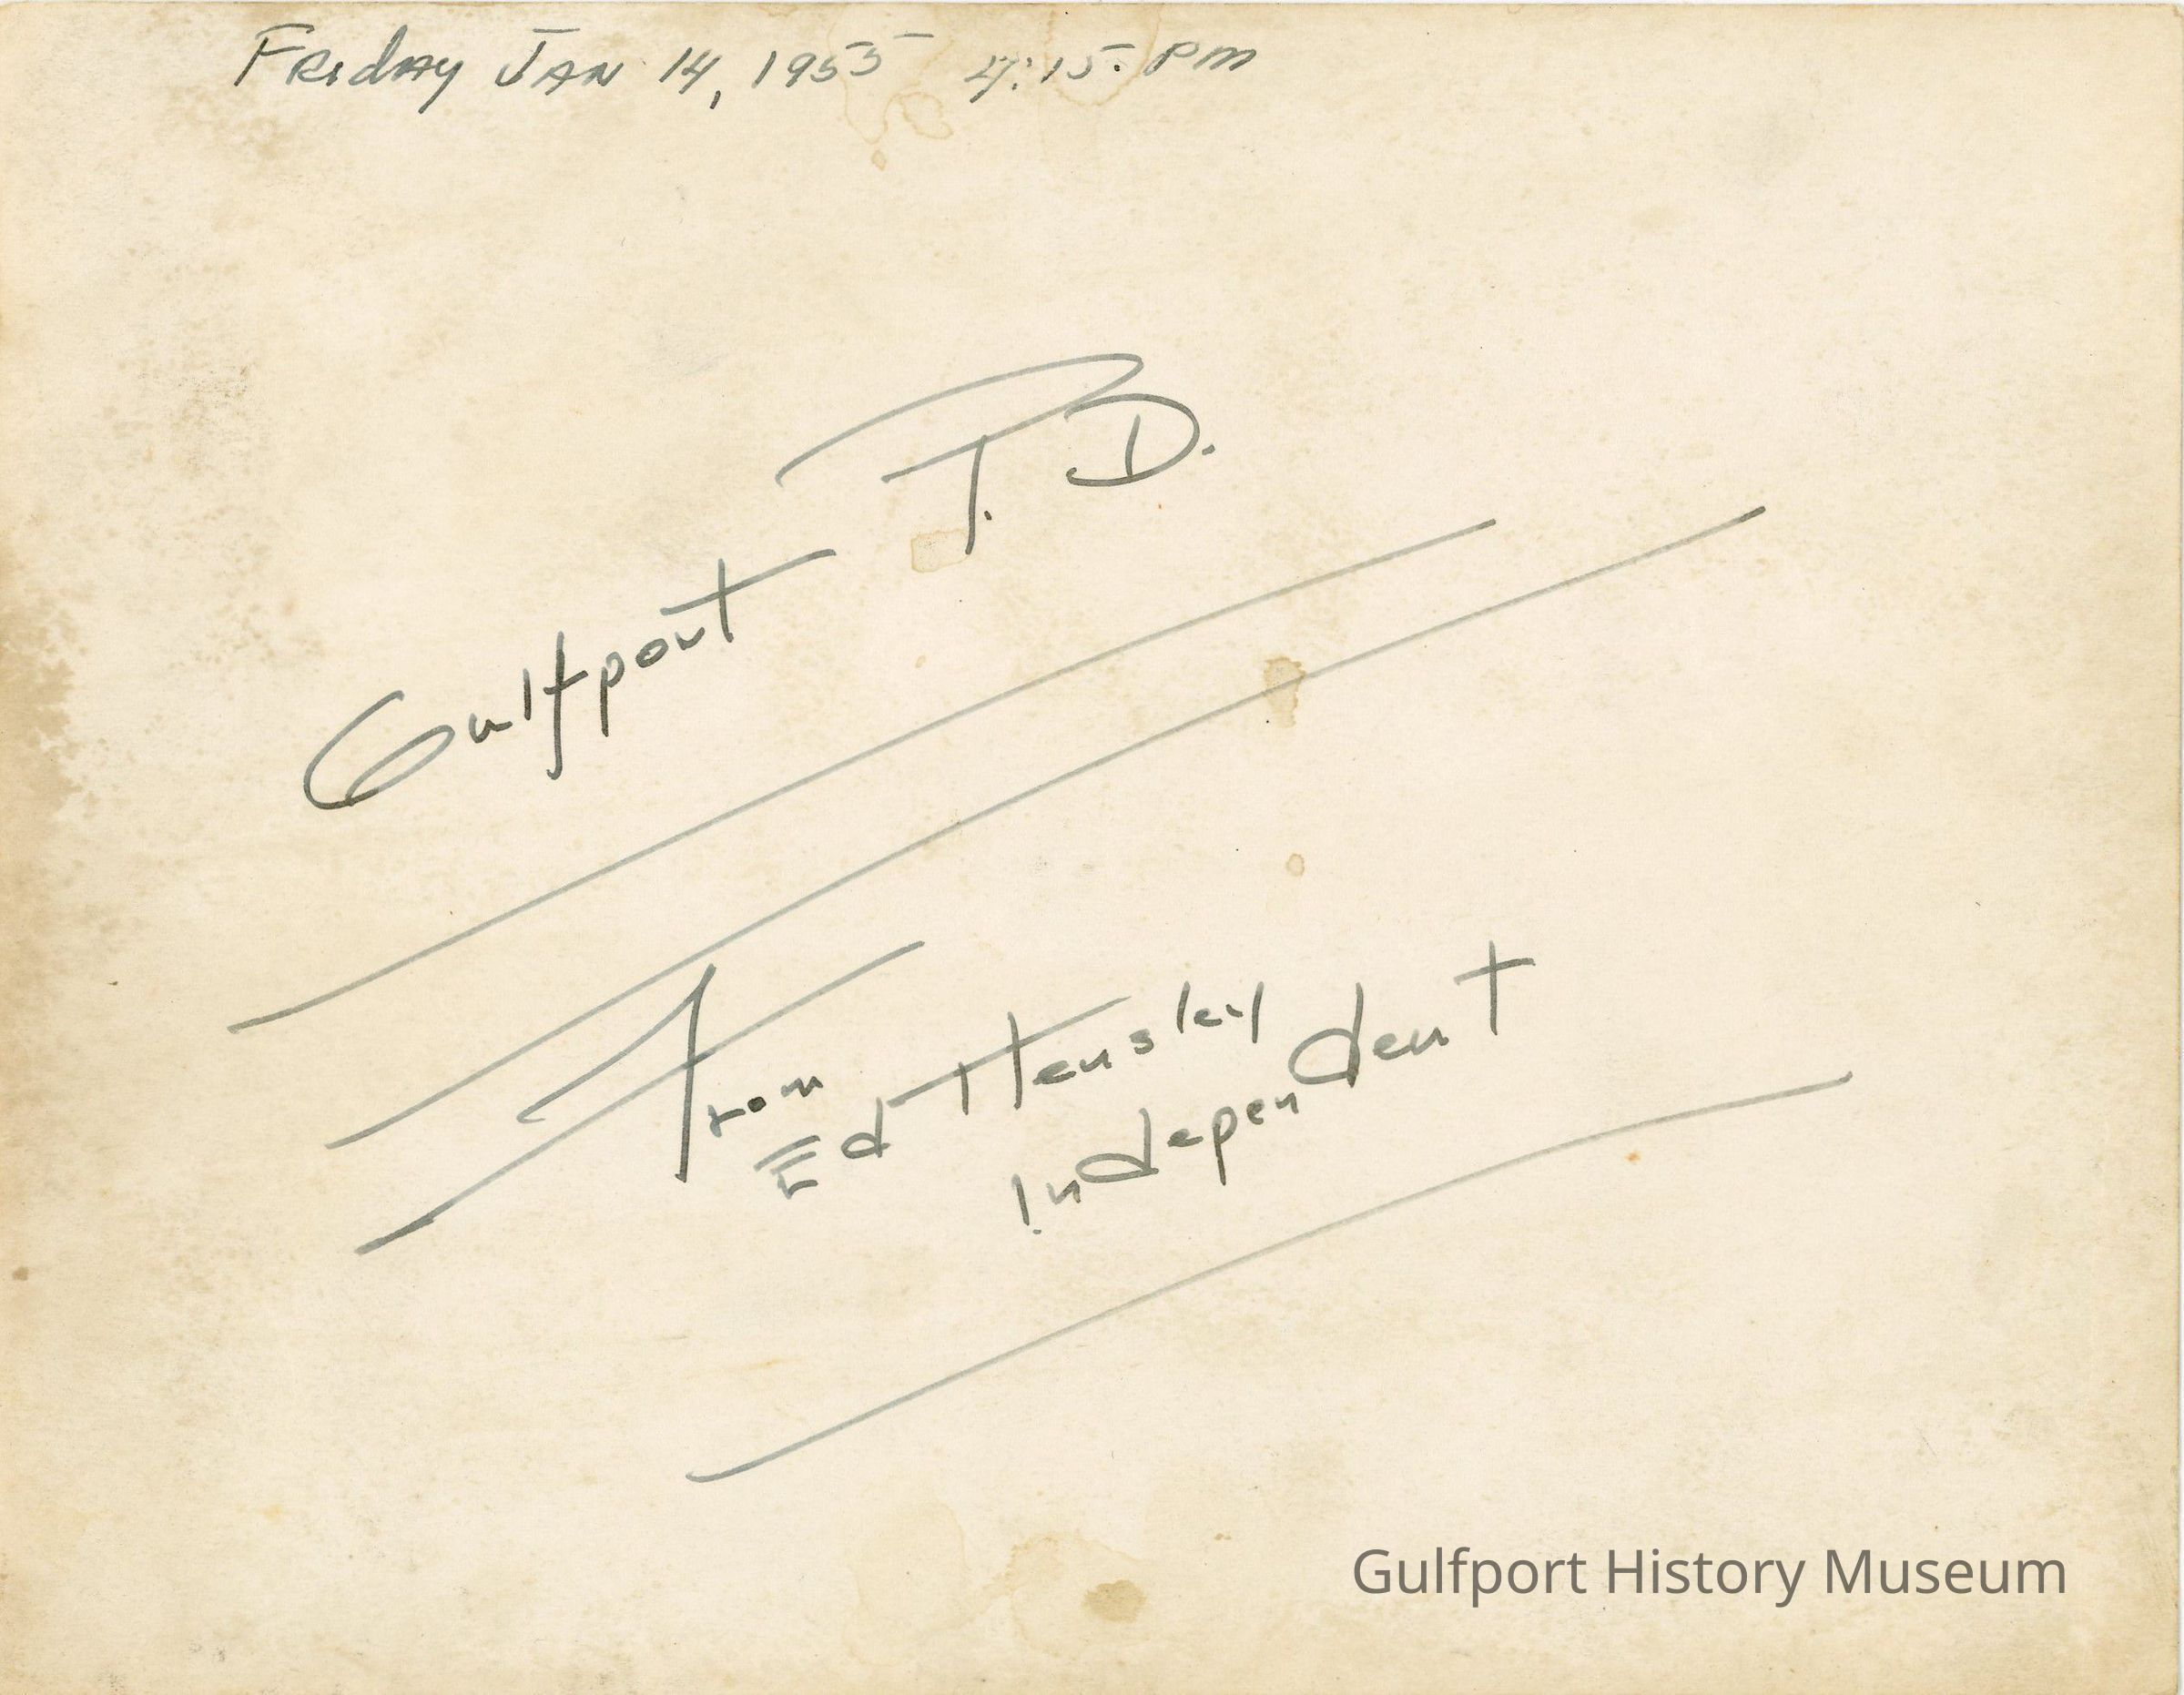 Friday JAN 14, 1955 4:15 PM
Gulfport P.D.
From
Ed Hensley
Independent
Gulfport History Museum